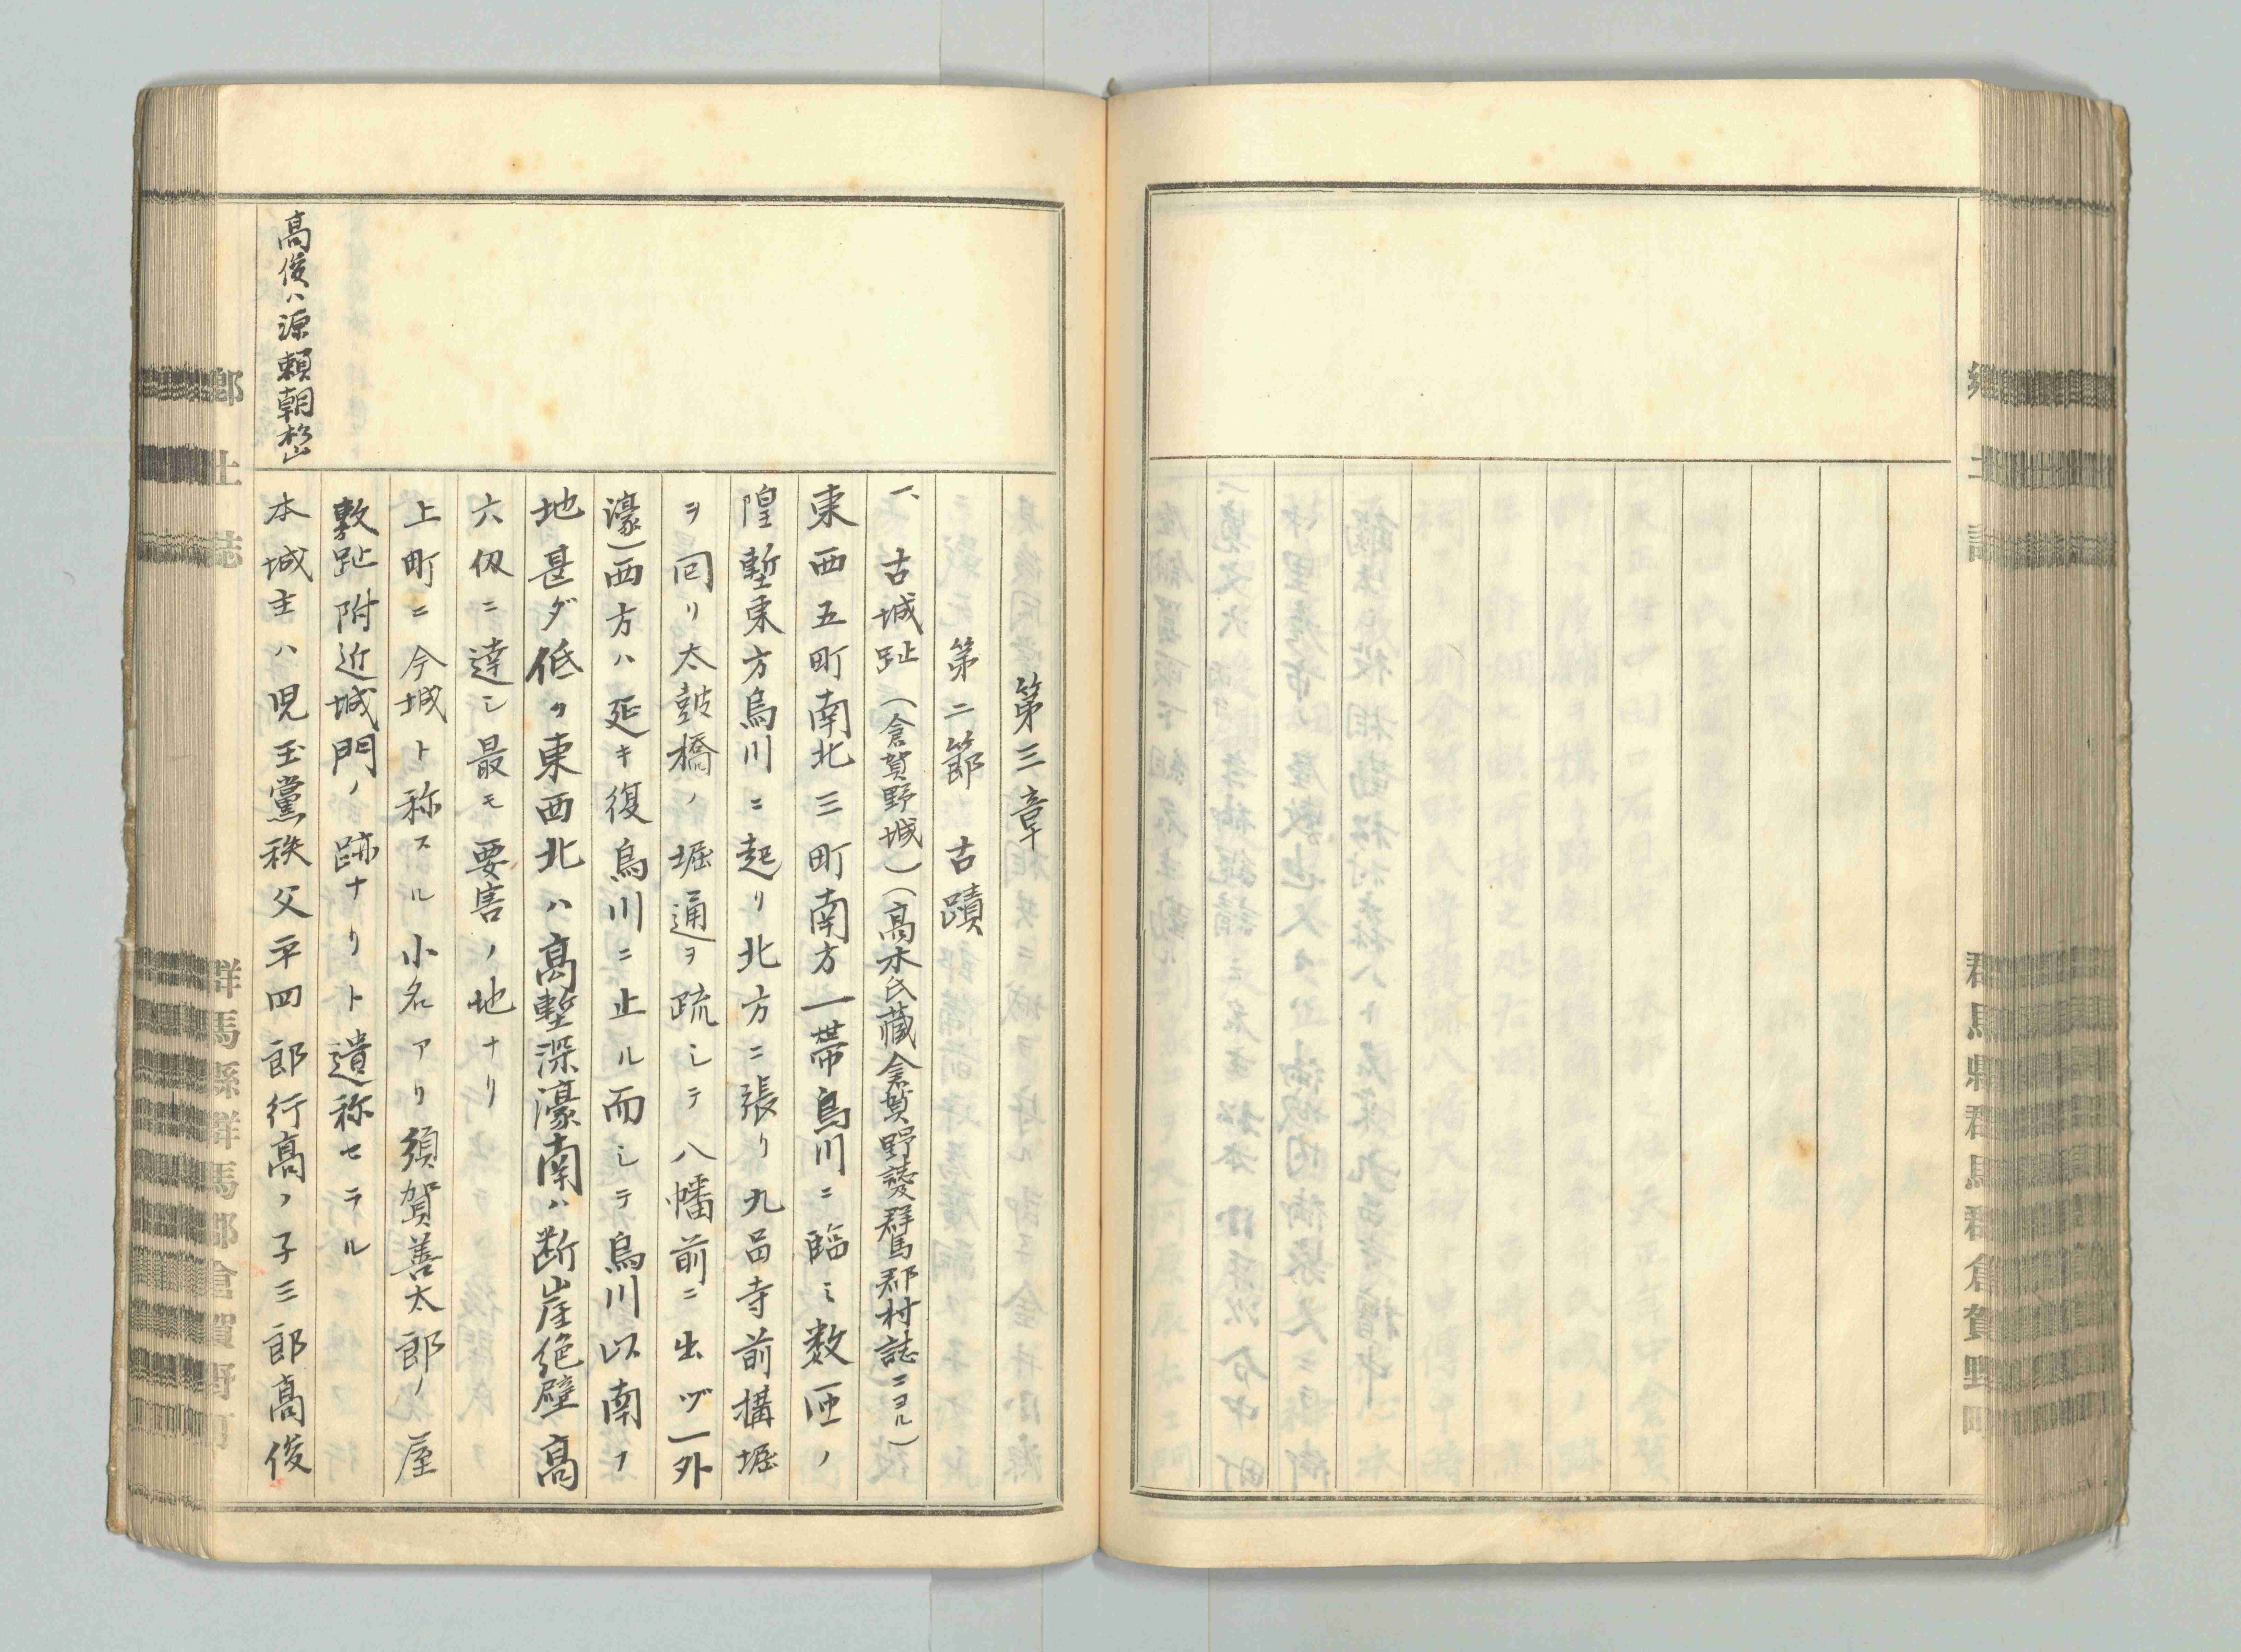 第三章
第二節　古蹟
一、古城趾（倉賀野城）（高木氏蔵倉賀野誌群馬郡村誌ニヨル）
東西五町南北三町南方一帯烏川ニ臨ミ数匝ノ
隍塹東方烏川ニ起リ北方ニ張リ九品寺前構堀
ヲ回リ太鼓橋ノ堀通ヲ疏シテ八幡前ニ出ヅ（外
濠）西方ハ延キ復烏川ニ止ル而シテ烏川以南ノ
地甚ダ低ク東西北ハ高塹深濠南ハ断崖絶壁高
六仭ニ達シ最モ要害ノ地ナリ
上町ニ今城ト称スル小名アリ須賀善太郎ノ屋
敷趾附近城門ノ跡ナリト遺称セラル
本城主ハ児玉黨秩父平四郎行高ノ子三郎高俊
高俊ハ源頼朝
郷土誌
群馬縣群馬郡倉賀野町